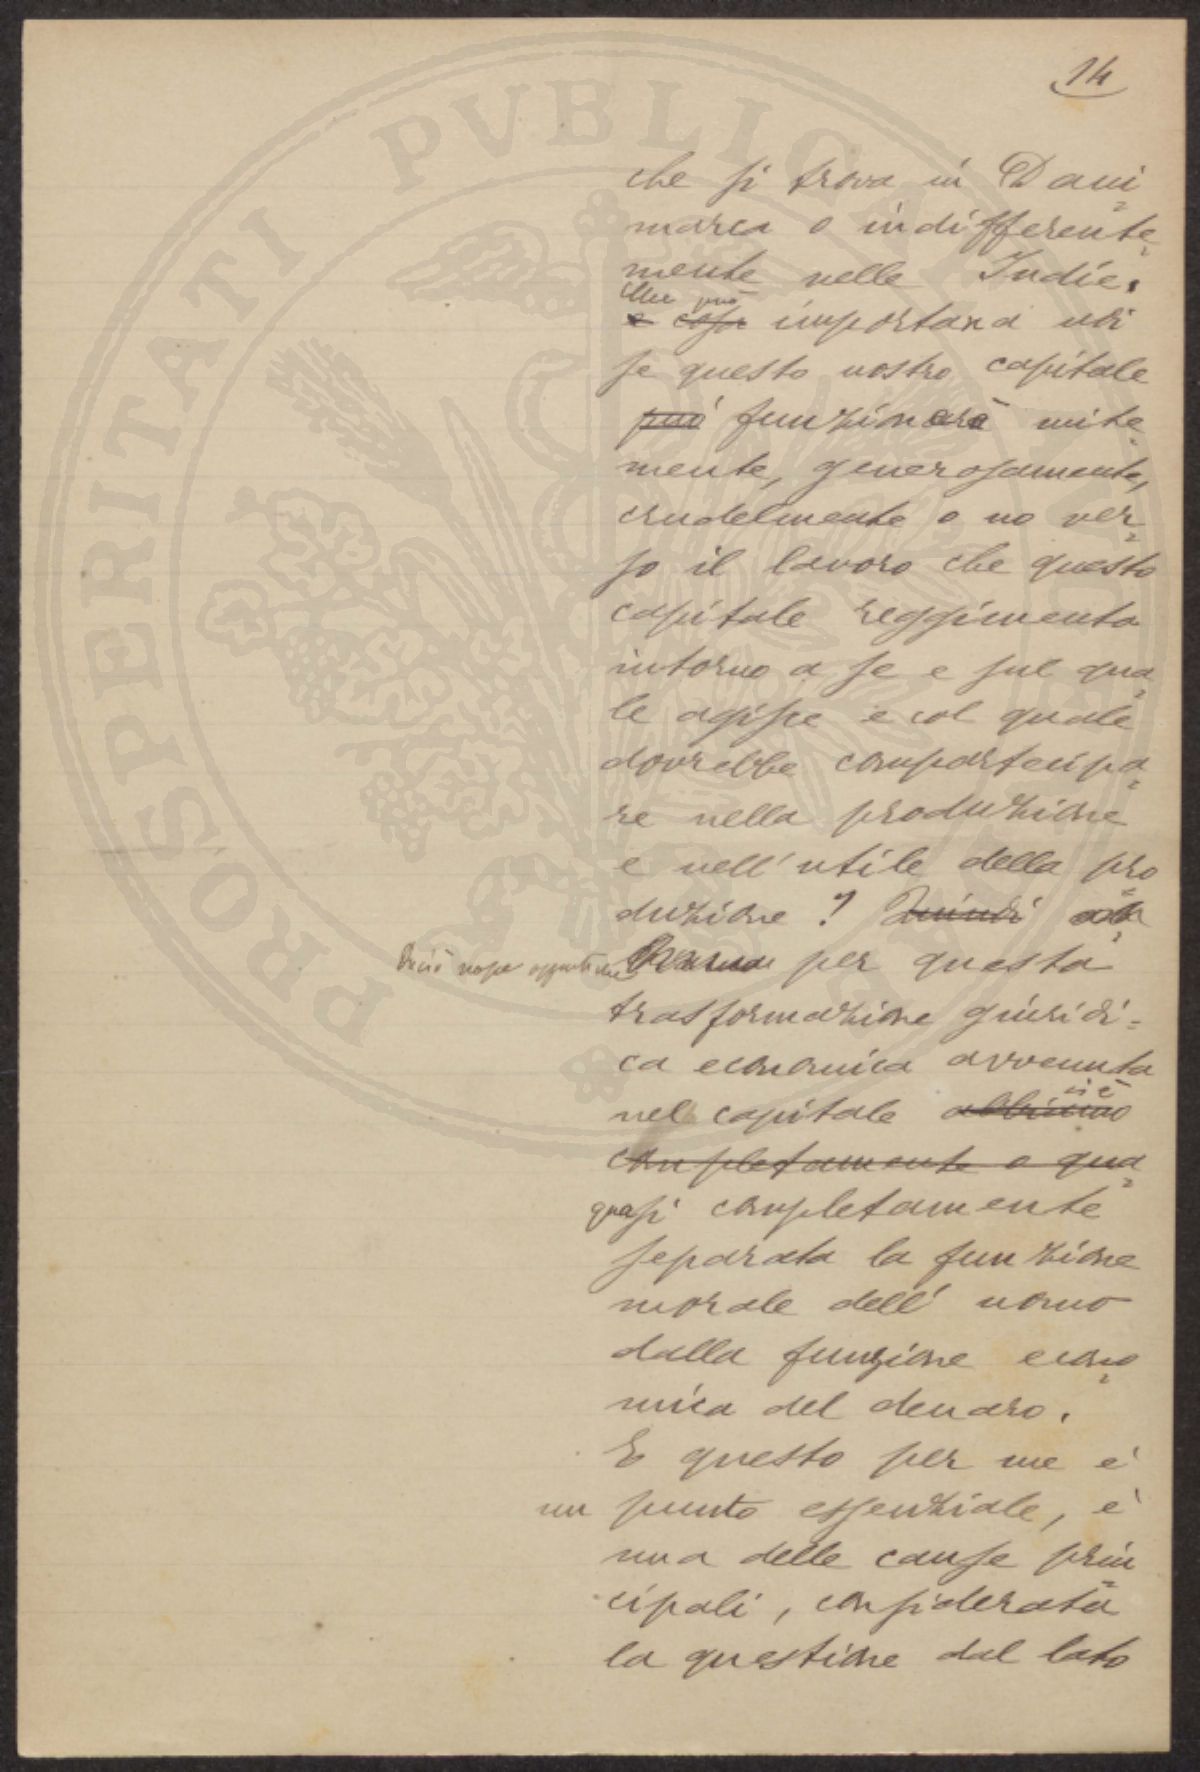 14
PROSPERITATI PVBLICAE
che si trova in Dani
marca o indifferente
mente nelle Indie.
Che può
e cosa importare a noi
se questo nostro capitale
può funzionare mite
mente, generosamente,
crudelmente o no ver
so il lavoro che questo
capitale reggimenta
intorno a se e sul qua
le agisce e col quale
dovrebbe compartecipa
re nella produzione
e nell'utile della pro
duzione? Quindi
per questa
trasformazione giuridi=
ca economica avvenuta
si è
nel capitale abbiamo
completamente o qua
quasi completamente
separata la funzione
morale dell'uomo
dalla funzione econo
mica del denaro.
E questo per me è
un punto essenziale, è
una delle cause prin
cipali, considerata
la questione dal lato